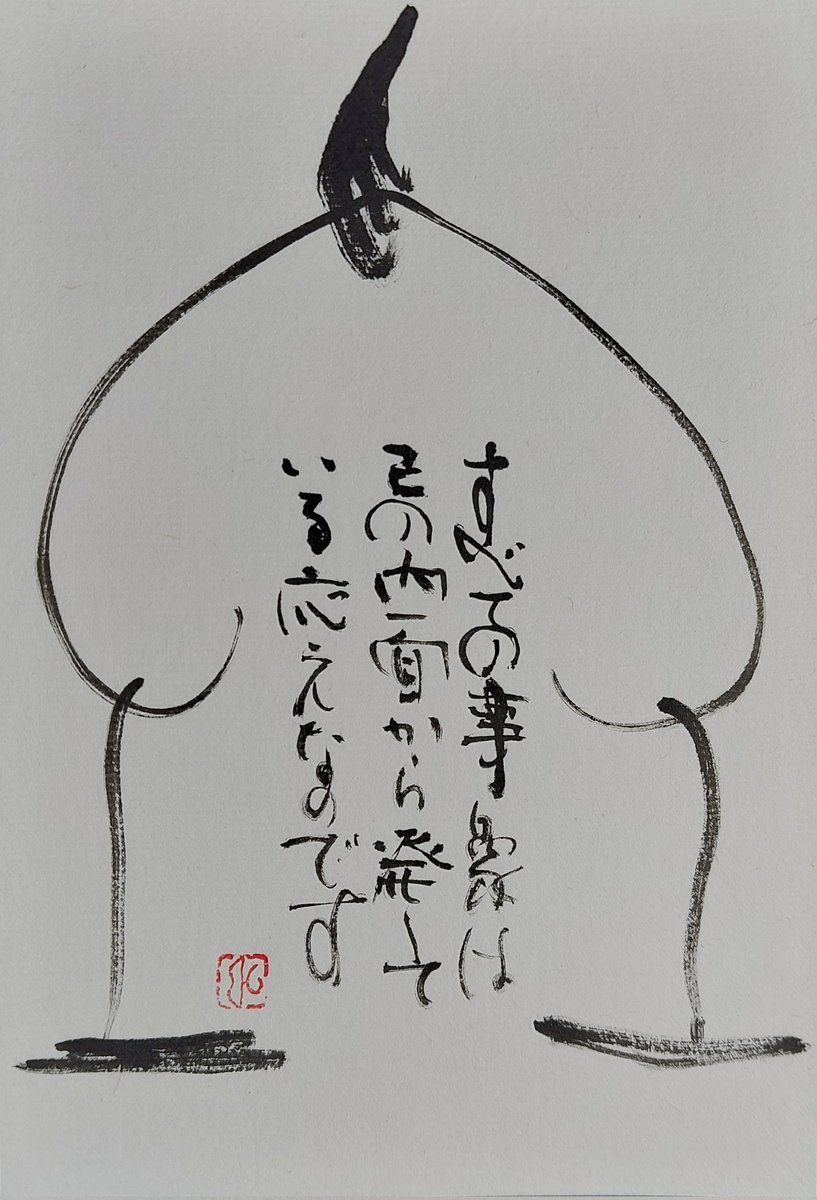 すべての事象は
己の内面から発して
いる応えなのです